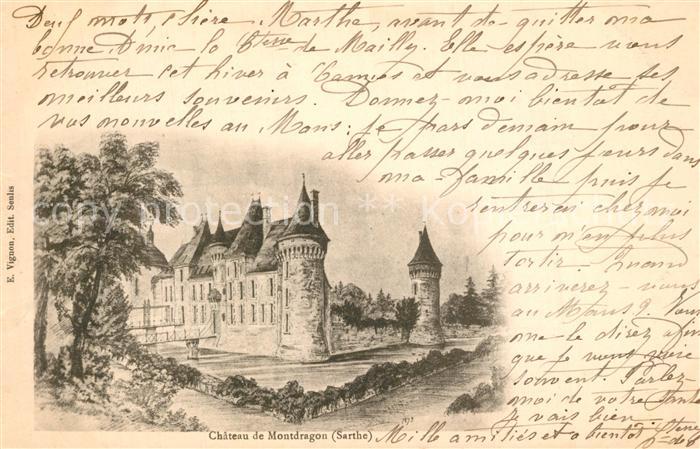 Deux mots, chère Marthe, avant de quitter ma
bonne Amie la Ctesse de Mailly. Elle espère vous
retrouver cet hiver à Cannes et vous adresse ses
meilleurs souvenirs. Donnez-moi bientôt de
vos nouvelles au Mans; je pars demain pour
aller passer quelques jours dans
ma famille puis je
rentrerai chez moi
pour n'en plus
sortir. Quand
arriverez-vous
au Mans? Vous
me le direz afin
que je vous voie
souvent. Parlez
moi de votre santé
je vais bien
Mille amitiés et à bientôt
E. Vignon, Edit. Senlis
Château de Montdragon (Sarthe)
copyright protection